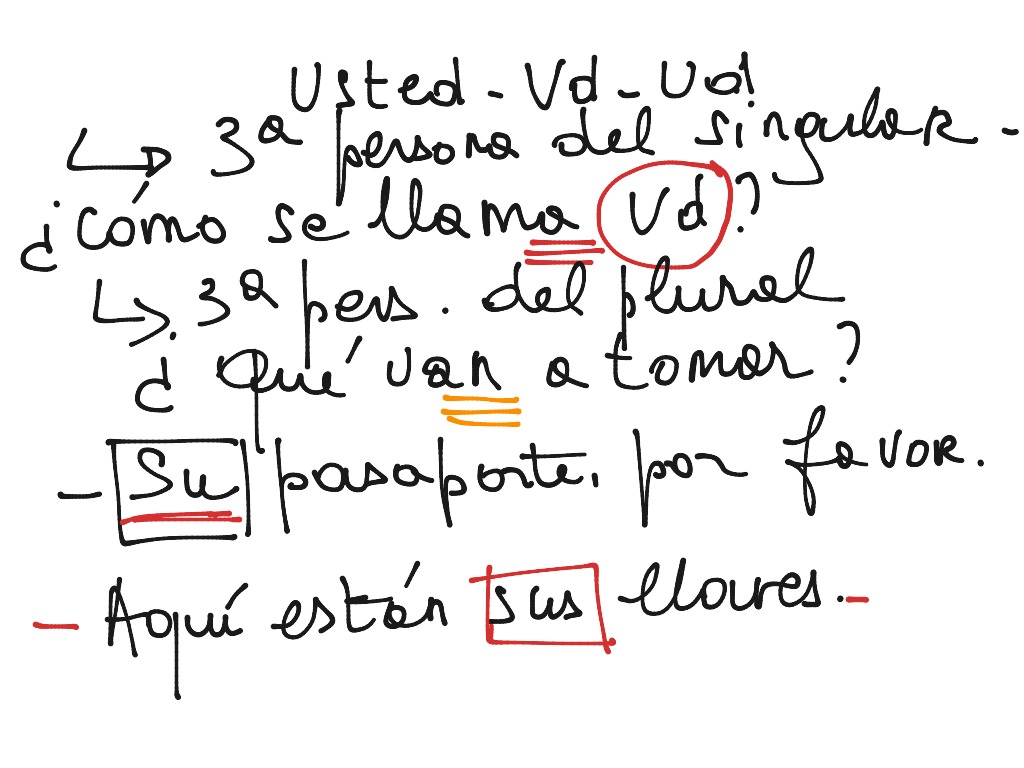 Usted - Vd - Ud
↳ 3ª persona del singular -
¿cómo se llama Vd?
↳ 3ª pers. del plural
¿Qué van a tomar?
- Su pasaporte, por favor.
- Aquí están sus llaves. -